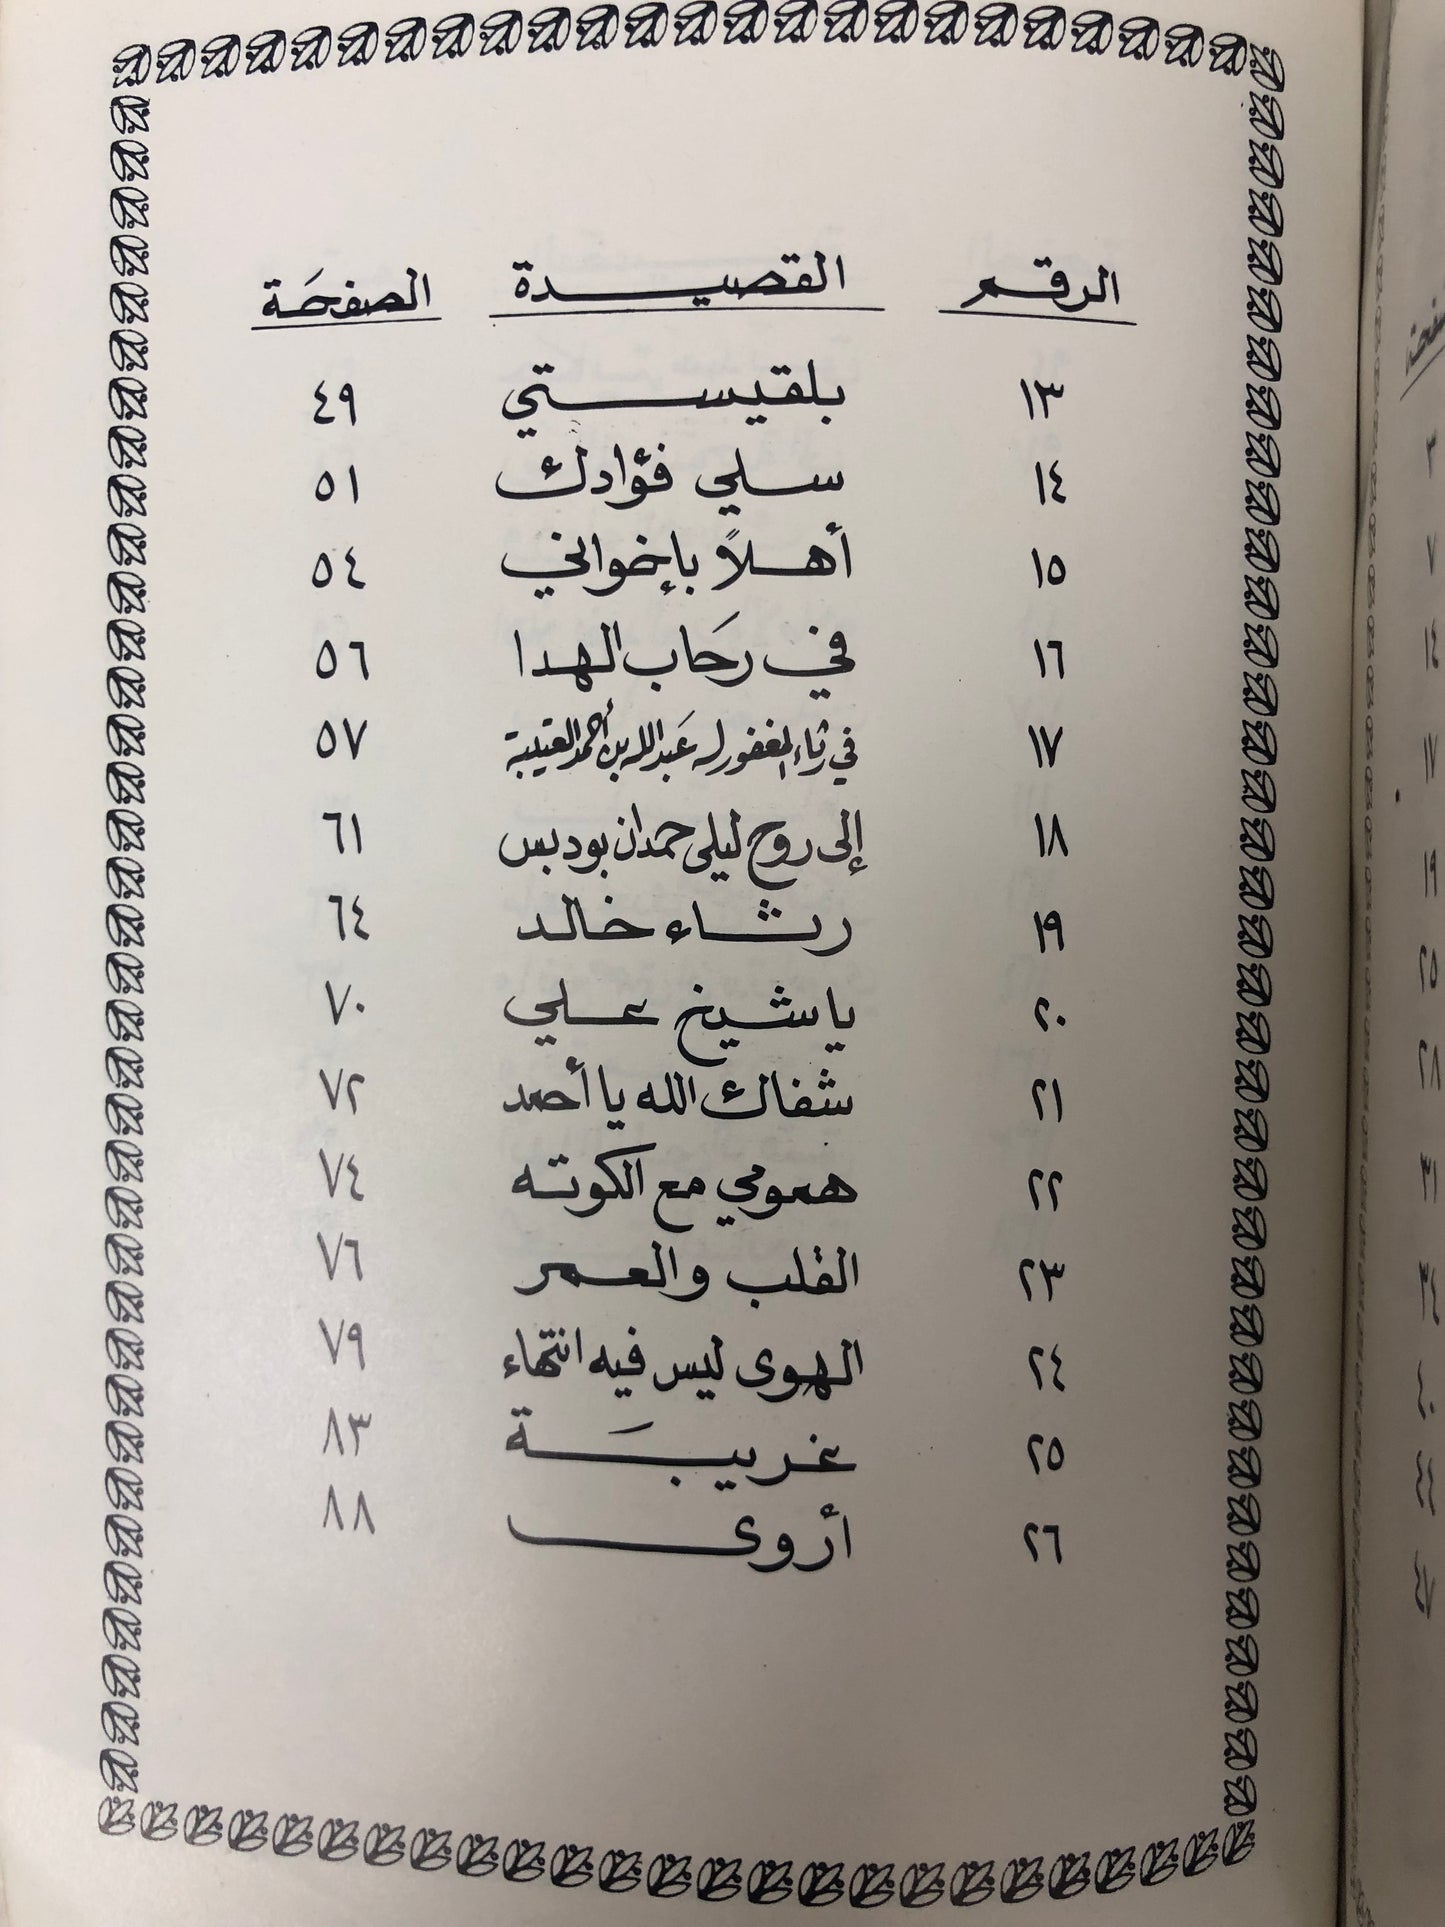 الرقم القصيدة الصفحة
١٣ بلقيستي ٤٩
١٤ سلي فؤادك ٥١
١٥ أهلاً بإخواني ٥٤
١٦ في رحاب الهدا ٥٦
١٧ في رثاء المغفور له عبدالله بن أحمد العتيبة ٥٧
١٨ إلى روح ليلى حمدان بودبس ٦١
١٩ رثاء خالد ٦٤
٢٠ يا شيخ علي ٧٠
٢١ شفاك الله يا أحمد ٧٢
٢٢ همومي مع الكوته ٧٤
٢٣ القلب والعمر ٧٦
٢٤ الهوى ليس فيه انتهاء ٧٩
٢٥ غريبة ٨٣
٢٦ أروى ٨٨